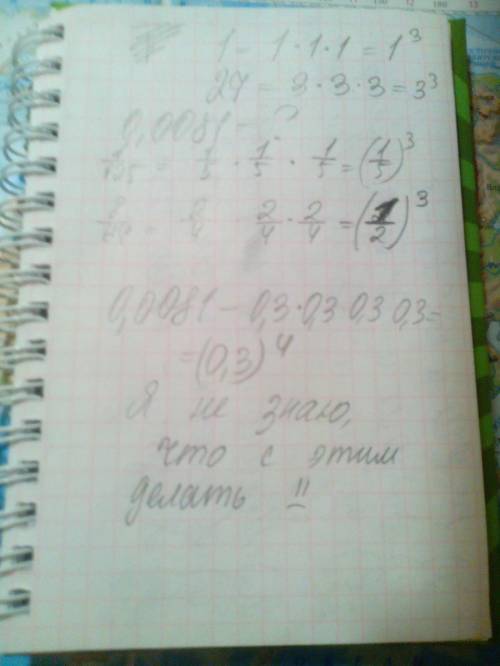 1 = 1 · 1 · 1 = 1³
27 = 3 · 3 · 3 = 3³
0,0081 - ?
1/125 = 1/5 · 1/5 · 1/5 = (1/5)³
2/4 · 2/4 = (1/2)³
0,0081 - 0,3 · 0,3 0,3 0,3 =
= (0,3)⁴
Я не знаю,
что с этим
делать !!